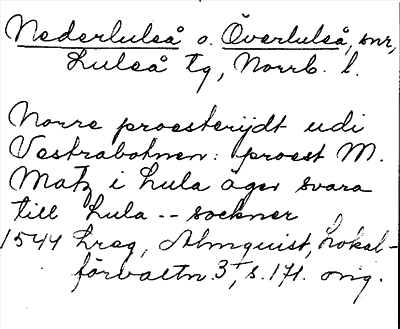 Nederluleå o. Överluleå, snr,
Luleå tg, Norrb. l.
Norre proesterijdt udi
Vestrabotnen: proest M.
Matz i Lula äger svara
till Lula -- sockner
1544 hreg, Almquist, Lokal-
förvaltn. 3, s. 171. orig.